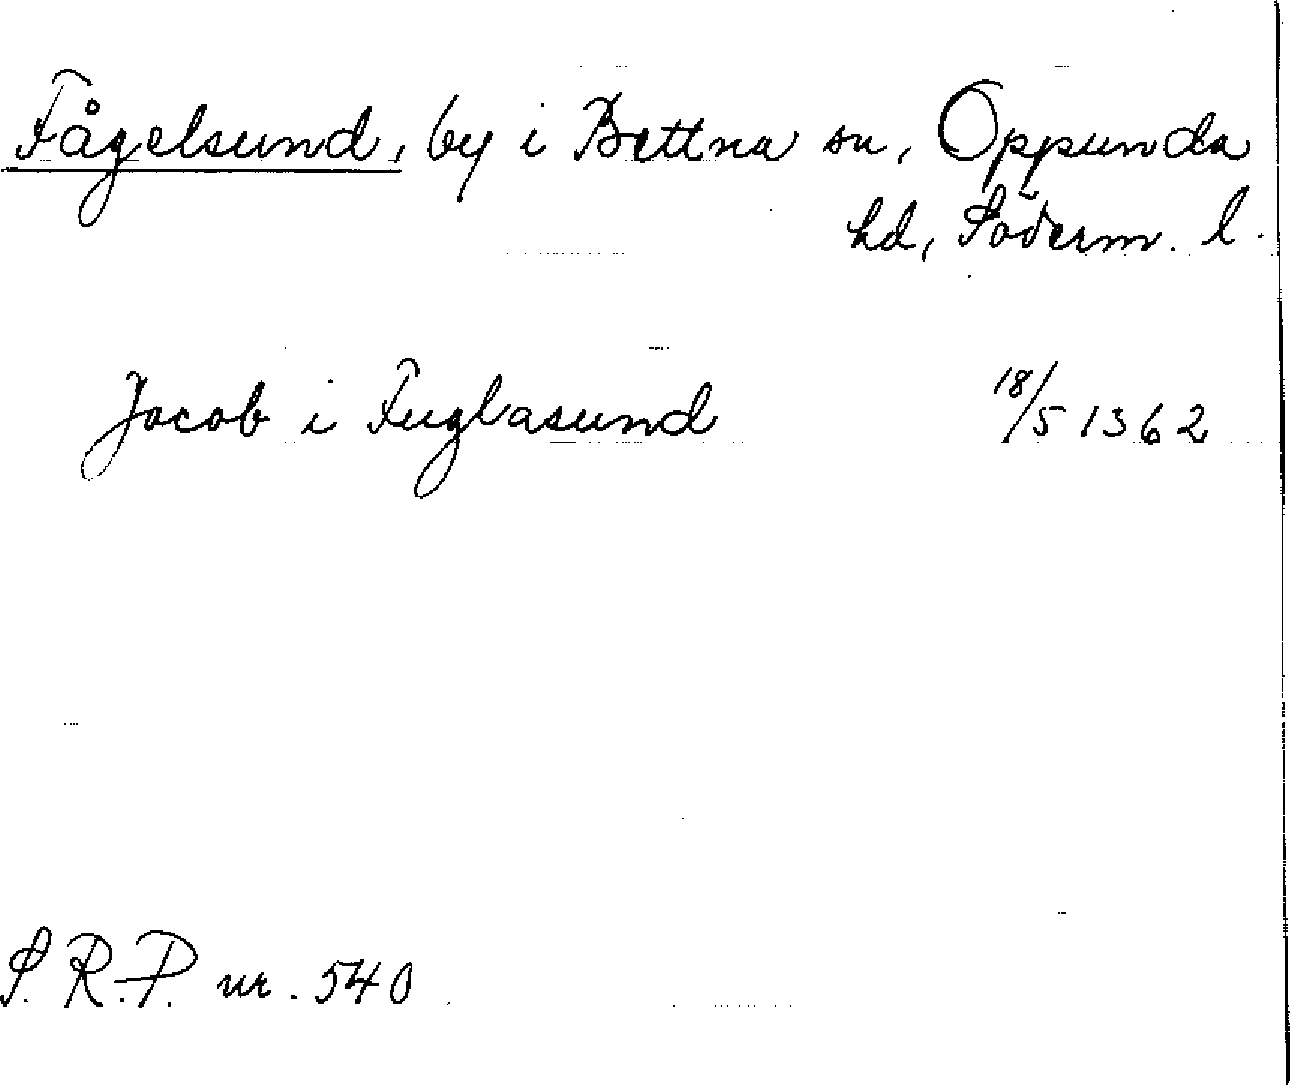 Fågelsund, by i Bettna sn, Oppunda
hd, Söderm. l.
Jocob i Fuglasund 18/5 1362
S. R. P. nr. 540